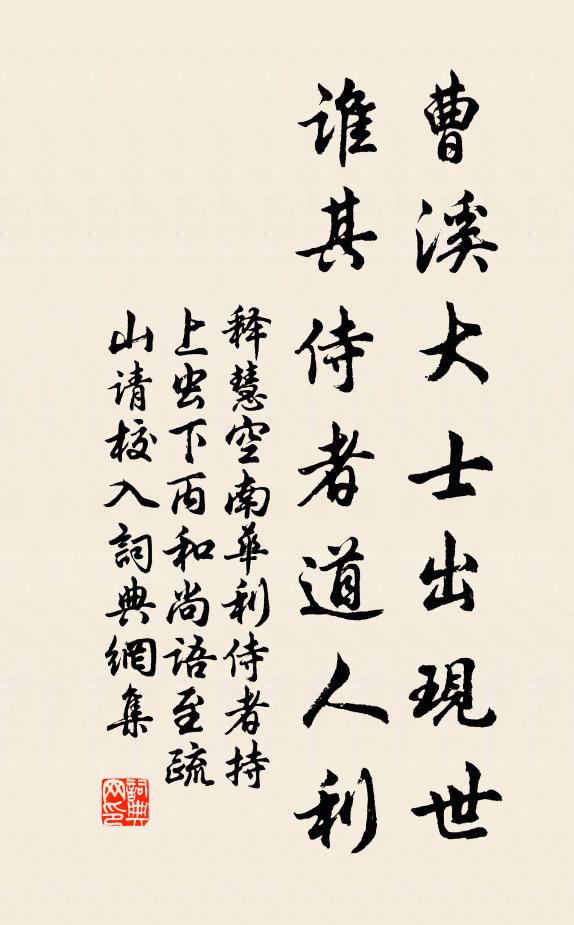 曹溪大士出現世
誰其侍者道人利
释慧空南華利侍者持
上虫下丙和尚语至疏
山请校入詞典網集
詞典网印